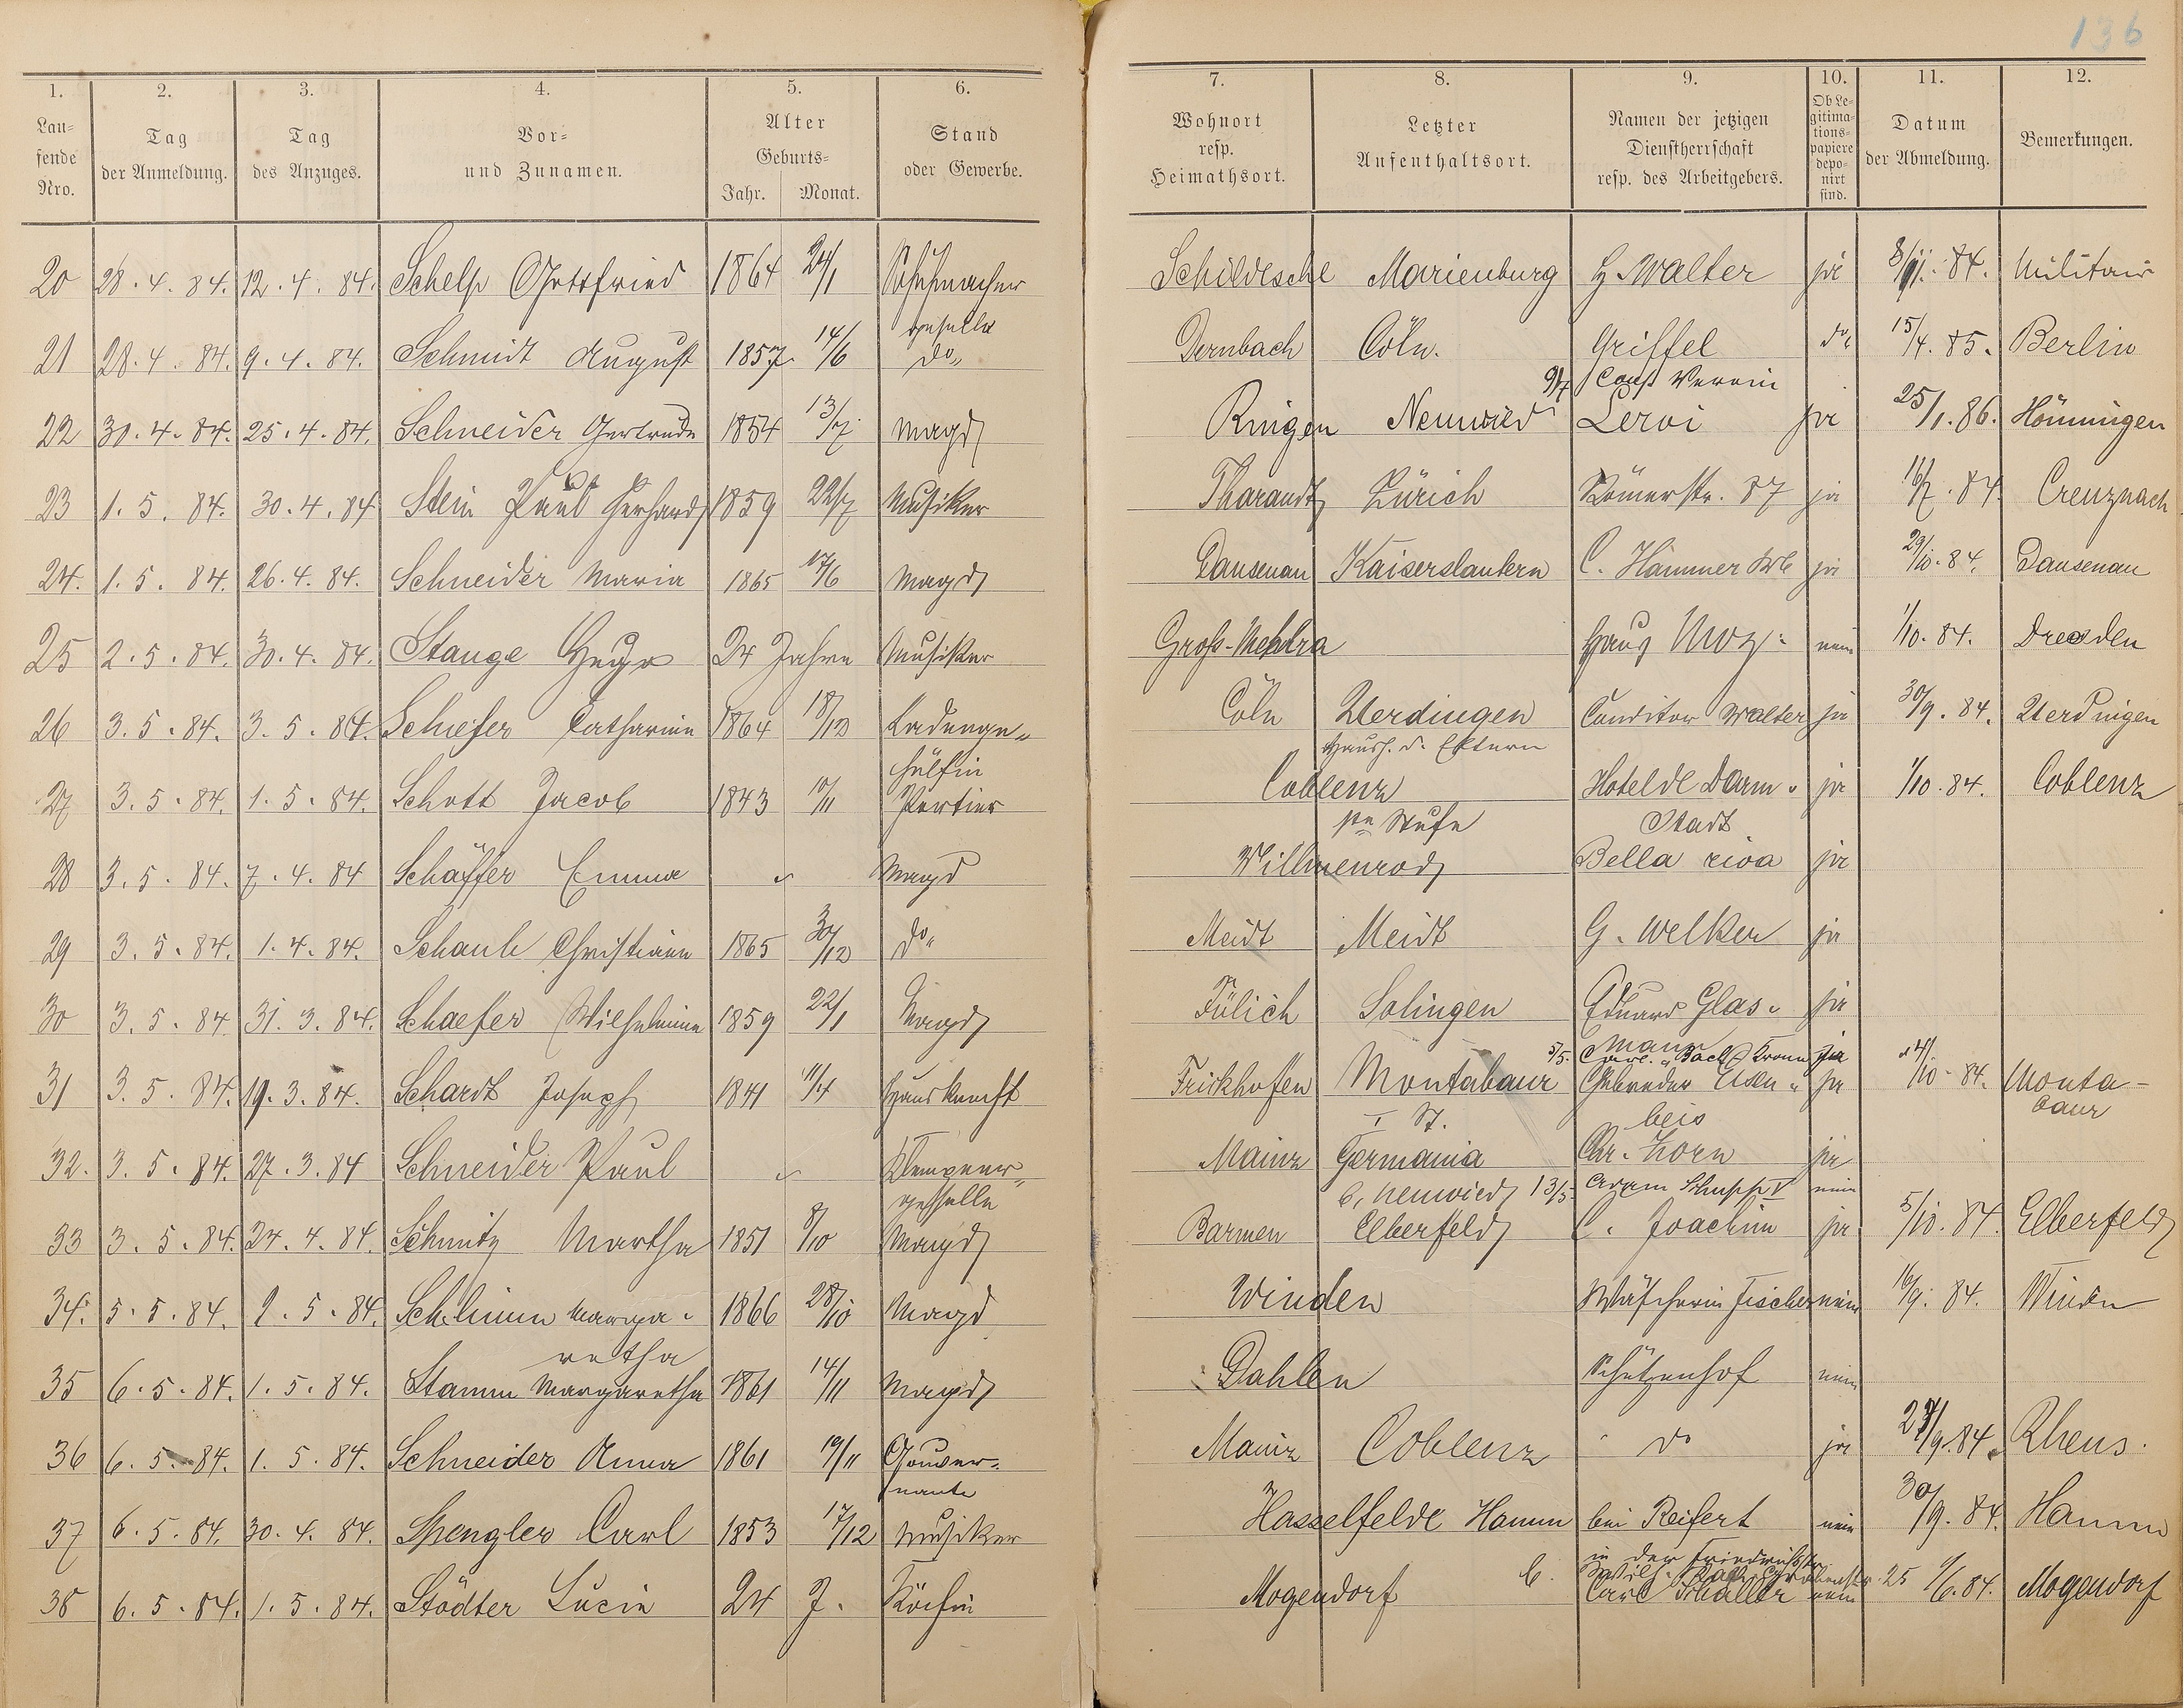 136
1. 2. 3. 4. 5. 6. 7. 8. 9. 10. 11. 12.
Lau-
fende
Nro.
Tag
der Anmeldung.
Tag
des Anzuges.
Vor-
und Zunamen.
Alter
Geburts-
Jahr. Monat.
Stand
oder Gewerbe.
Wohnort
resp.
Heimathsort.
Letzter
Aufenthaltsort.
Namen der jetzigen
Dienstherrschaft
resp. des Arbeitgebers.
Ob Le-
gitima-
tions-
papiere
depo-
nirt
sind.
Datum
der Abmeldung.
Bemerkungen.
20 28.4.84. 12.4.84. Schelp Gottfried 1864 24/1 Schuhmacher Schildesche Marienburg H. Walter ja 8/11.84. Militair
geselle
21 28.4.84. 9.4.84. Schmidt August 1857 14/6 do Dernbach Cöln. Griffel do 15/4.85. Berlin
9/4 Cons Verein
22 30.4.84. 25.4.84. Schneider Gertrude 1854 13/7 Magd Ringen Neuwied Leroi ja 25/1.86. Hönningen
23 1.5.84. 30.4.84 Stein Paul Gerhard 1859 22/7 Musiker Tharandt Zürich Römerstr. 87 ja 16/7.84. Creuznach
24. 1.5.84. 26.4.84. Schneider Maria 1865 17/6 Magd Dausenau Kaiserslautern C. Hammer Ww ja 29/10.84. Dausenau
25 2.5.84. 30.4.84. Stange Hugo 24 Jahre Musiker Gross-Mehlra Haus Moz. nein 1/10.84. Dresden
26 3.5.84. 3.5.84. Schiefer Catharine 1864 18/12 Ladenge- Cöln Uerdingen Conditor Walter ja 30/9.84. Uerdingen
hülfin Haush. d. Eltern
27 3.5.84. 1.5.84. Schott Jacob 1843 10/11 Portier Coblenz Hotel de Darm- ja 1/10.84. Coblenz
Stadt
28 3.5.84. 7.4.84 Schäffer Emma Magd Willmenrod Bella riva ja
29 3.5.84. 1.4.84. Schaub Christiane 1865 30/12 do Meidt Meidt G. Welker ja
30 3.5.84 31.3.84. Schaefer Wilhelmine 1859 22/1 Magd Jülich Solingen Eduard Glas- ja
mann
5/5.
31 3.5.84. 19.3.84. Schardt Joseph 1841 11/4 Hausknecht Frickhofen Montabaur Gebrüder ja 24/10.84. Monta-
I St. baur
32. 3.5.84. 27.3.84 Schneider Paul Klempner- Mainz Germania Chr. Zorn ja
geselle b. Neuwied 13/5. Adam Schupp V nein
33 3.5.84. 24.4.84. Schmitz Martha 1851 8/10 Magd Barmen Elberfeld C. Joachim ja 5/10.84. Elberfeld
34. 5.5.84. 1.5.84. Schlimm Marga- 1866 28/10 Magd Winden Wäscherin Fischer nein 16/9.84. Winden
retha
35 6.5.84. 1.5.84. Stamm Margaretha 1861 14/11 Magd Dahlen Schützenhof nein
36 6.5.84. 1.5.84. Schneider Anna 1861 19/11 Gouver- Mainz Coblenz do ja 27/9.84. Rhens.
nante
37 6.5.84. 30.4.84. Spengler Carl 1853 17/12 Musiker Hasselfelde Hamm bei Reifert nein 30/9.84. Hamm
in der Friedrichstr.
38 6.5.84. 1.5.84. Städter Lucie 24 J. Köchin Mogendorf Carl Schaller nein 1/6.84. Mogendorf